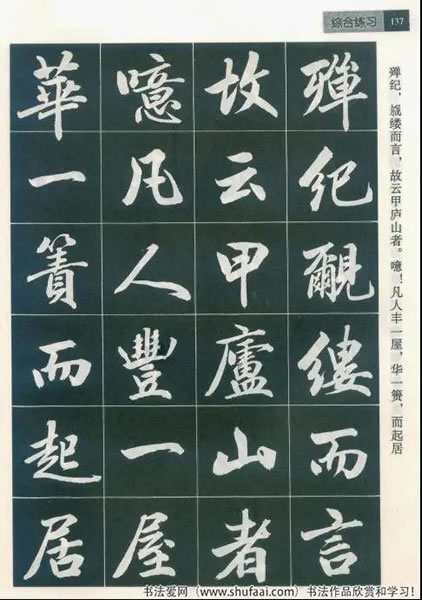 综合练习 137
殫紀覼縷而言
故云甲廬山者
噫凡人豐一屋
華一簀而起居
殚纪，覙缕而言，故云甲庐山者。噫！凡人丰一屋，华一箦，而起居
书法爱网（www.shufaai.com）书法作品欣赏和学习！